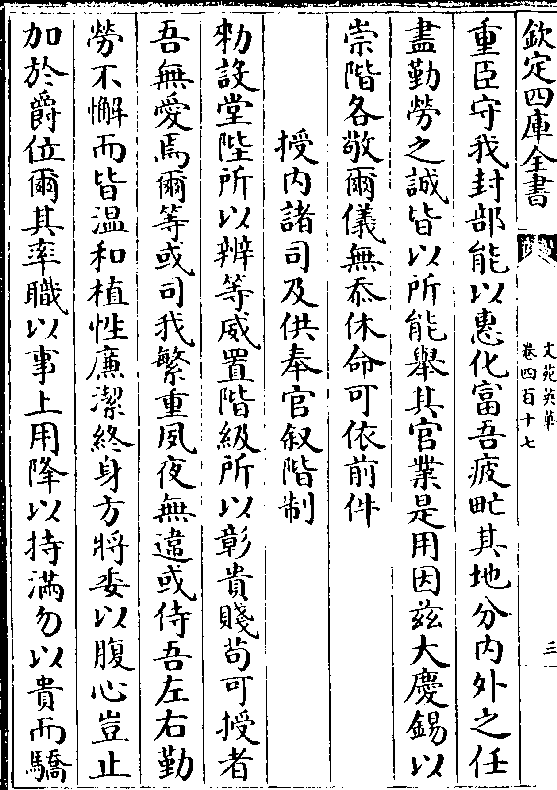 欽定四庫全書
文苑英華
卷四百十七
三
重臣守我封部能以惠化富吾疲甿其地分内外之任
盡勤勞之誠皆以所能舉其官業是用因兹大慶錫以
崇階各敬爾儀無忝休命可依前件
授内諸司及供奉官叙階制
勅設堂陛所以辨等威置階級所以彰貴賤苟可授者
吾無愛焉爾等或司我繁重夙夜無違或侍吾左右勤
勞不懈而皆温和植性亷潔終身方將委以腹心豈止
加於爵位爾其率職以事上用降以持滿勿以貴而驕